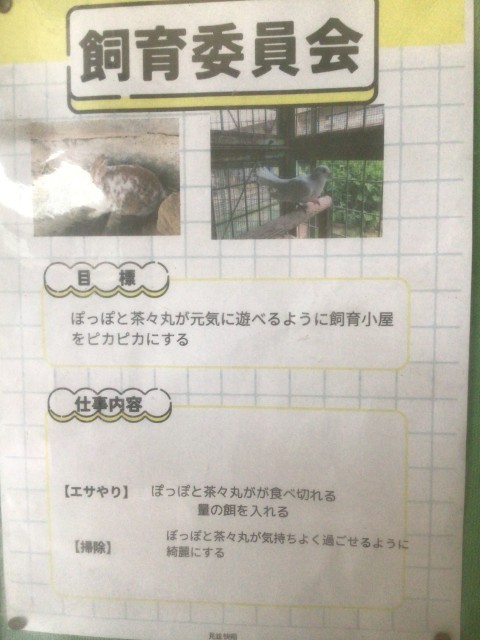 飼育委員会
目 標
ぽっぽと茶々丸が元気に遊べるように飼育小屋
をピカピカにする
仕事内容
【エサやり】 ぽっぽと茶々丸がが食べ切れる
量の餌を入れる
【掃除】 ぽっぽと茶々丸が気持ちよく過ごせるように
綺麗にする